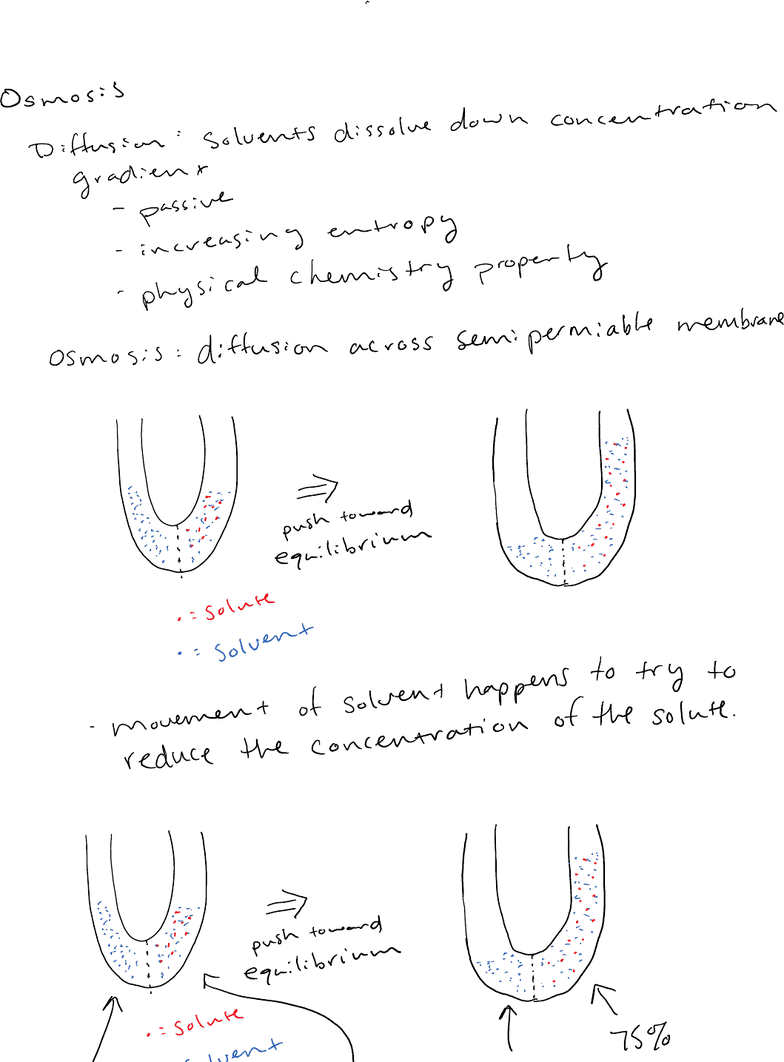 Osmosis
Diffusion: Solvents dissolve down concentration
gradient
- passive
- increasing entropy
- physical chemistry property
Osmosis: diffusion across semipermiable membrane
push toward
equilibrium
• = Solute
• = Solvent
- movement of solvent happens to try to
reduce the concentration of the solute.
push toward
equilibrium
• = Solute
Solvent
75%